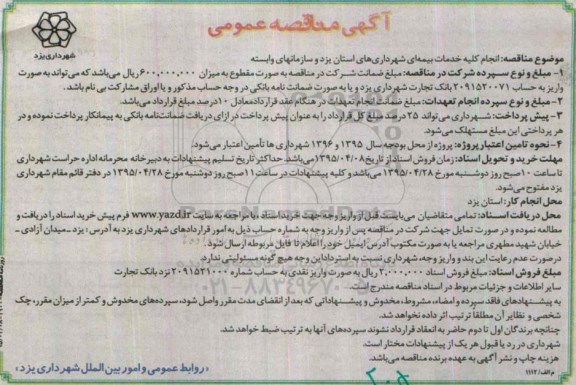 آگهی مناقصه عمومی
شهرداری یزد
موضوع مناقصه: انجام کلیه خدمات بیمه‌ای شهرداری‌های استان یزد و سازمانهای وابسته
۱- مبلغ و نوع سپرده شرکت در مناقصه: مبلغ ضمانت شرکت در مناقصه به صورت مقطوع به میزان ۶۰۰,۰۰۰,۰۰۰ ریال می‌باشد که می‌تواند به صورت
واریز به حساب ۲۰۹۱۵۲۰۰۷۱ بانک تجارت شهرداری یزد و یا به صورت ضمانت نامه بانکی در وجه حساب مذکور و یا اوراق مشارکت بی نام باشد.
۲- مبلغ و نوع سپرده انجام تعهدات: مبلغ ضمانت انجام تعهدات در هنگام عقد قرارداد معادل ۱۰ درصد مبلغ قرارداد می‌باشد.
۳- پیش پرداخت: شهرداری می تواند ۲۵ درصد مبلغ کل قرارداد را به عنوان پیش پرداخت در ازای دریافت ضمانت‌نامه بانکی به پیمانکار پرداخت نموده و در
هر پرداختی این مبلغ مستهلک می‌شود.
۴- نحوه تامین اعتبار پروژه: پروژه از محل بودجه سال ۱۳۹۵ و ۱۳۹۶ شهرداری ها تأمین اعتبار می‌شود.
مهلت خرید و تحویل اسناد: زمان فروش اسناد از تاریخ ۱۳۹۵/۰۴/۰۸ می‌باشد. حداکثر تاریخ تسلیم پیشنهادات به دبیرخانه محرمانه اداره حراست شهرداری
تا ساعت ۱۰ صبح روز دوشنبه مورخ ۱۳۹۵/۰۴/۲۸ می‌باشد و کلیه پیشنهادات در ساعت ۱۱ صبح روز دوشنبه مورخ ۱۳۹۵/۰۴/۲۸ در دفتر قائم مقام شهرداری
یزد مفتوح می‌شود.
محل انجام کار: استان یزد
محل دریافت اسناد: تمامی متقاضیان می‌بایست قبل از واریز وجه جهت خرید اسناد، با مراجعه به سایت www.yazd.ir فرم پیش خرید اسناد را دریافت و
مطالعه نموده و در صورت تمایل جهت شرکت در مناقصه پس از واریز وجه به شماره حساب ذیل به امور قراردادهای شهرداری یزد به آدرس: یزد - میدان آزادی -
خیابان شهید مطهری مراجعه یا به صورت مکتوب آدرس ایمیل خود را اعلام تا فایل مربوطه ارسال شود.
در صورت عدم رعایت این بند و واریز وجه، شهرداری نسبت به استرداد این وجه هیچ گونه مسئولیتی ندارد.
مبلغ فروش اسناد: مبلغ فروش اسناد ۲,۰۰۰,۰۰۰ ریال به صورت واریز نقدی به حساب شماره ۲۰۹۱۵۲۱۰۰۰ نزد بانک تجارت
سایر اطلاعات و جزئیات مربوط در اسناد مناقصه مندرج است.
به پیشنهادهای فاقد سپرده و امضاء، مشروط، مخدوش و پیشنهاداتی که بعد از انقضای مدت مقرر واصل شود، سپرده‌های مخدوش و کمتر از میزان مقرر، چک
شخصی و نظایر آن مطلقا ترتیب اثر داده نخواهد شد.
چنانچه برندگان اول تا دوم حاضر به انعقاد قرارداد نشوند سپرده‌های آنها به ترتیب ضبط خواهد شد.
شهرداری در رد یا قبول هر یک از پیشنهادات مختار است.
هزینه چاپ و نشر آگهی به عهده برنده مناقصه می‌باشد.
«روابط عمومی و امور بین الملل شهرداری یزد»
م الف/۱۱۱۲
۰۲۱-۸۸۳۴۹۶۷۰